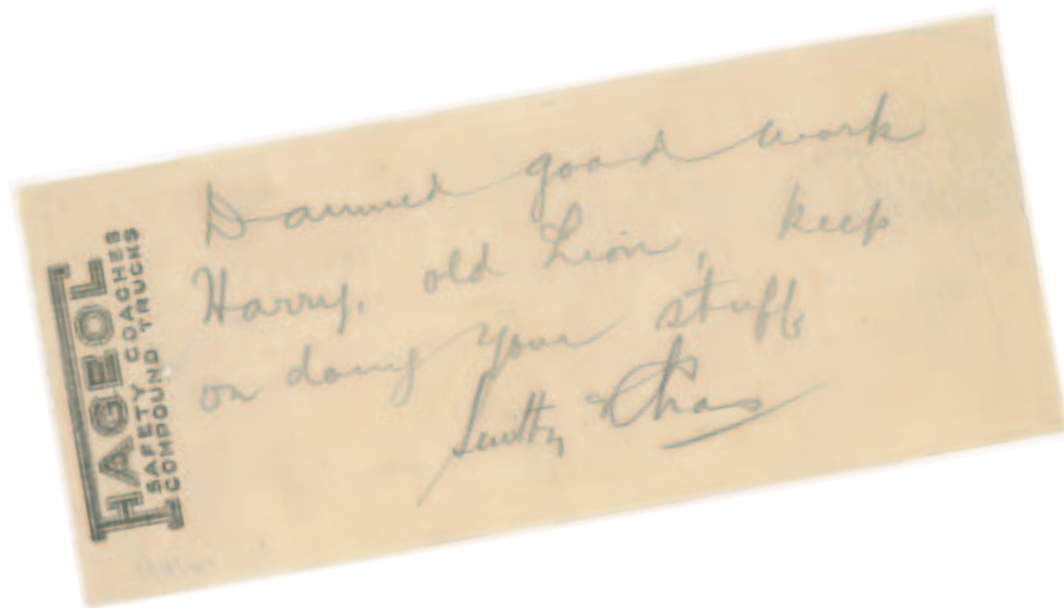 FAGEOL
SAFETY COACHES
COMPOUND TRUCKS
Damned good work
Harry, old Lion, keep
on doing your stuff
Smithy & Chas